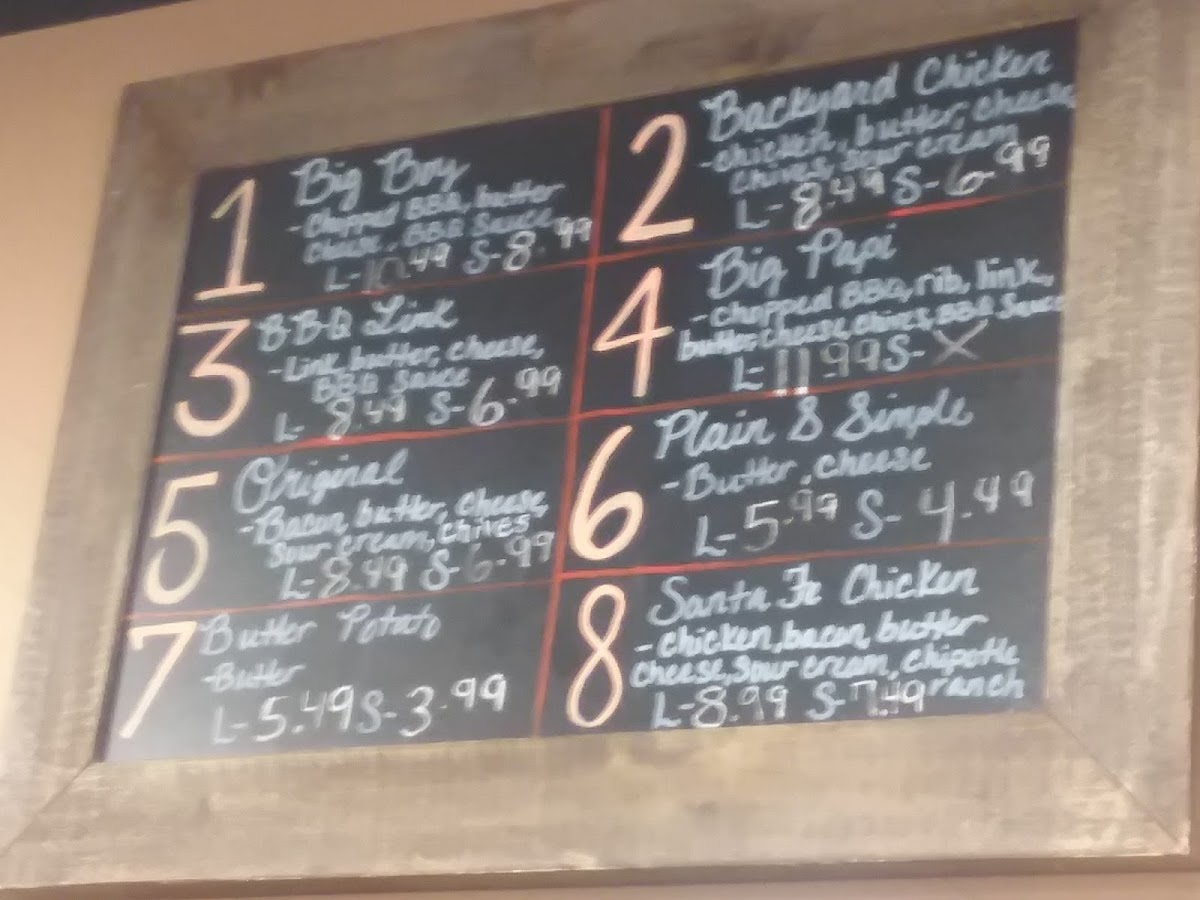 1 Big Boy
- Chopped BBQ, butter
cheese, BBQ Sauce
L-10.49 S-8.99
2 Backyard Chicken
-chicken, butter, cheese
chives, sour cream
L-8.49 S-6.99
3 BBQ Link
-Link, butter, cheese,
BBQ Sauce
L-8.49 S-6.99
4 Big Papi
-chopped BBQ, rib, link,
butter, cheese, chives, BBQ Sauce
L-11.99 S-X
5 Original
-Bacon, butter, cheese,
sour cream, chives
L-8.49 S-6.99
6 Plain & Simple
-Butter, cheese
L-5.99 S-4.49
7 Butter Potato
-Butter
L-5.49 S-3.99
8 Santa Fe Chicken
-chicken, bacon, butter
cheese, sour cream, chipotle
ranch
L-8.99 S-7.49